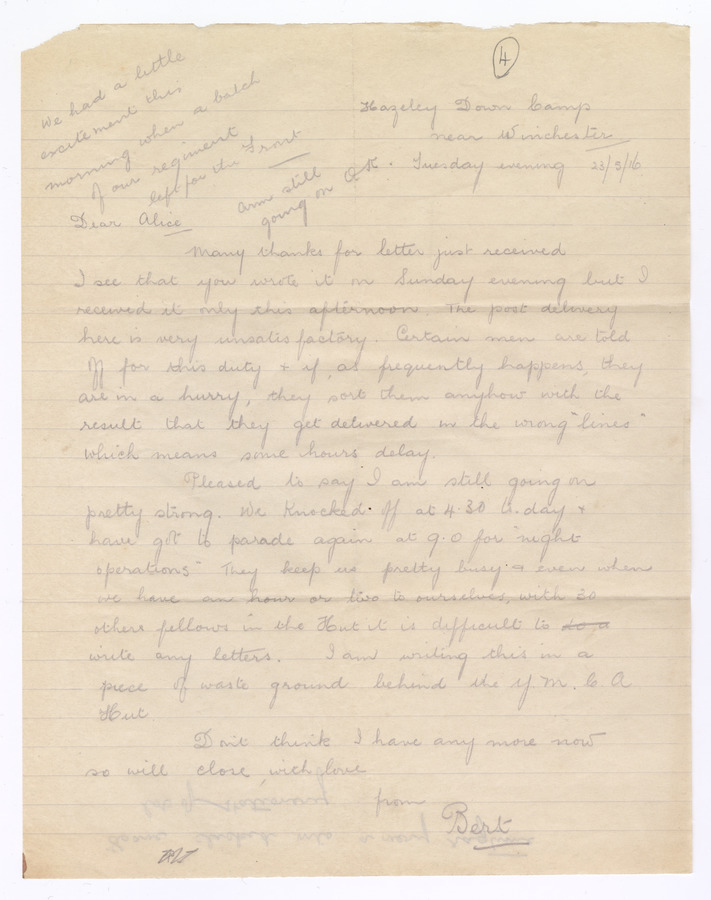 4
We had a little
excitement this
morning when a batch
of our regiment
left for the Front
Hazeley Down Camp
near Winchester
Tuesday evening 23/5/16
arm still
going on O.K.
Dear Alice
Many thanks for letter just received
I see that you wrote it on Sunday evening but I
received it only this afternoon. The post delivery
here is very unsatisfactory. Certain men are told
off for this duty & if, as frequently happens, they
are in a hurry, they sort them anyhow with the
result that they get delivered in the wrong "lines"
which means some hours delay.
Pleased to say I am still going on
pretty strong. We knocked off at 4.30 to.day &
have got to parade again at 9.0 for "night
operations" They keep us pretty busy & even when
we have an hour or two to ourselves, with 30
others fellows in the Hut it is difficult to do a
write any letters. I am writing this in a
piece of waste ground behind the Y. M. C A
Hut
Don't think I have any more now
so will close, with love
from
Bert